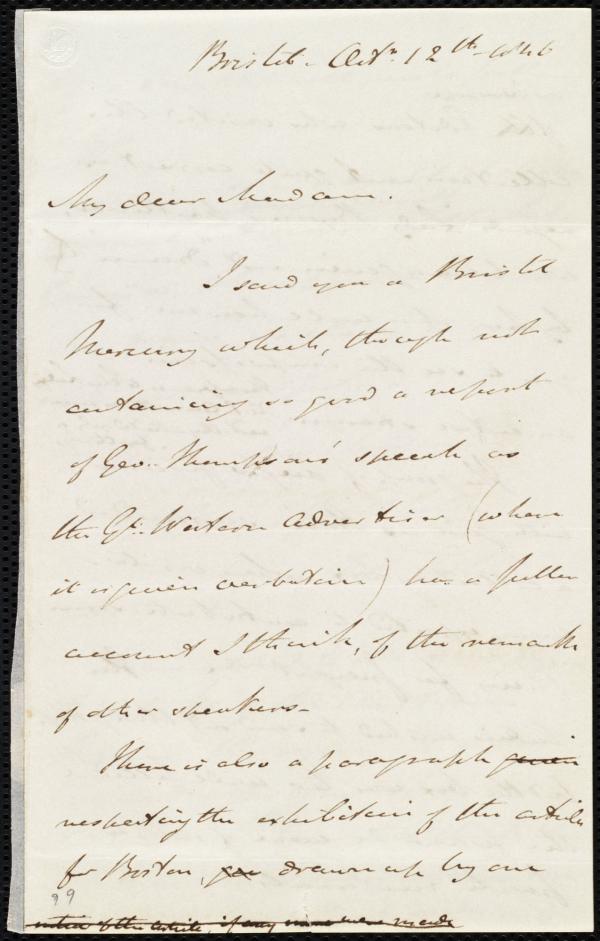 Bristol. Octr. 12th. 1846
My dear Madam.
I send you a Bristol
Mercury which, though not
containing so good a report
of Geo. Thompson's speech as
the Gt. Western Advertiser (where
it is given verbatim) has a fuller
account I think, of the remarks
of other speakers-
There is also a paragraph given
respecting the exhibition of the articles
for Boston, drawn up by our
99
notice of the article, if any were made